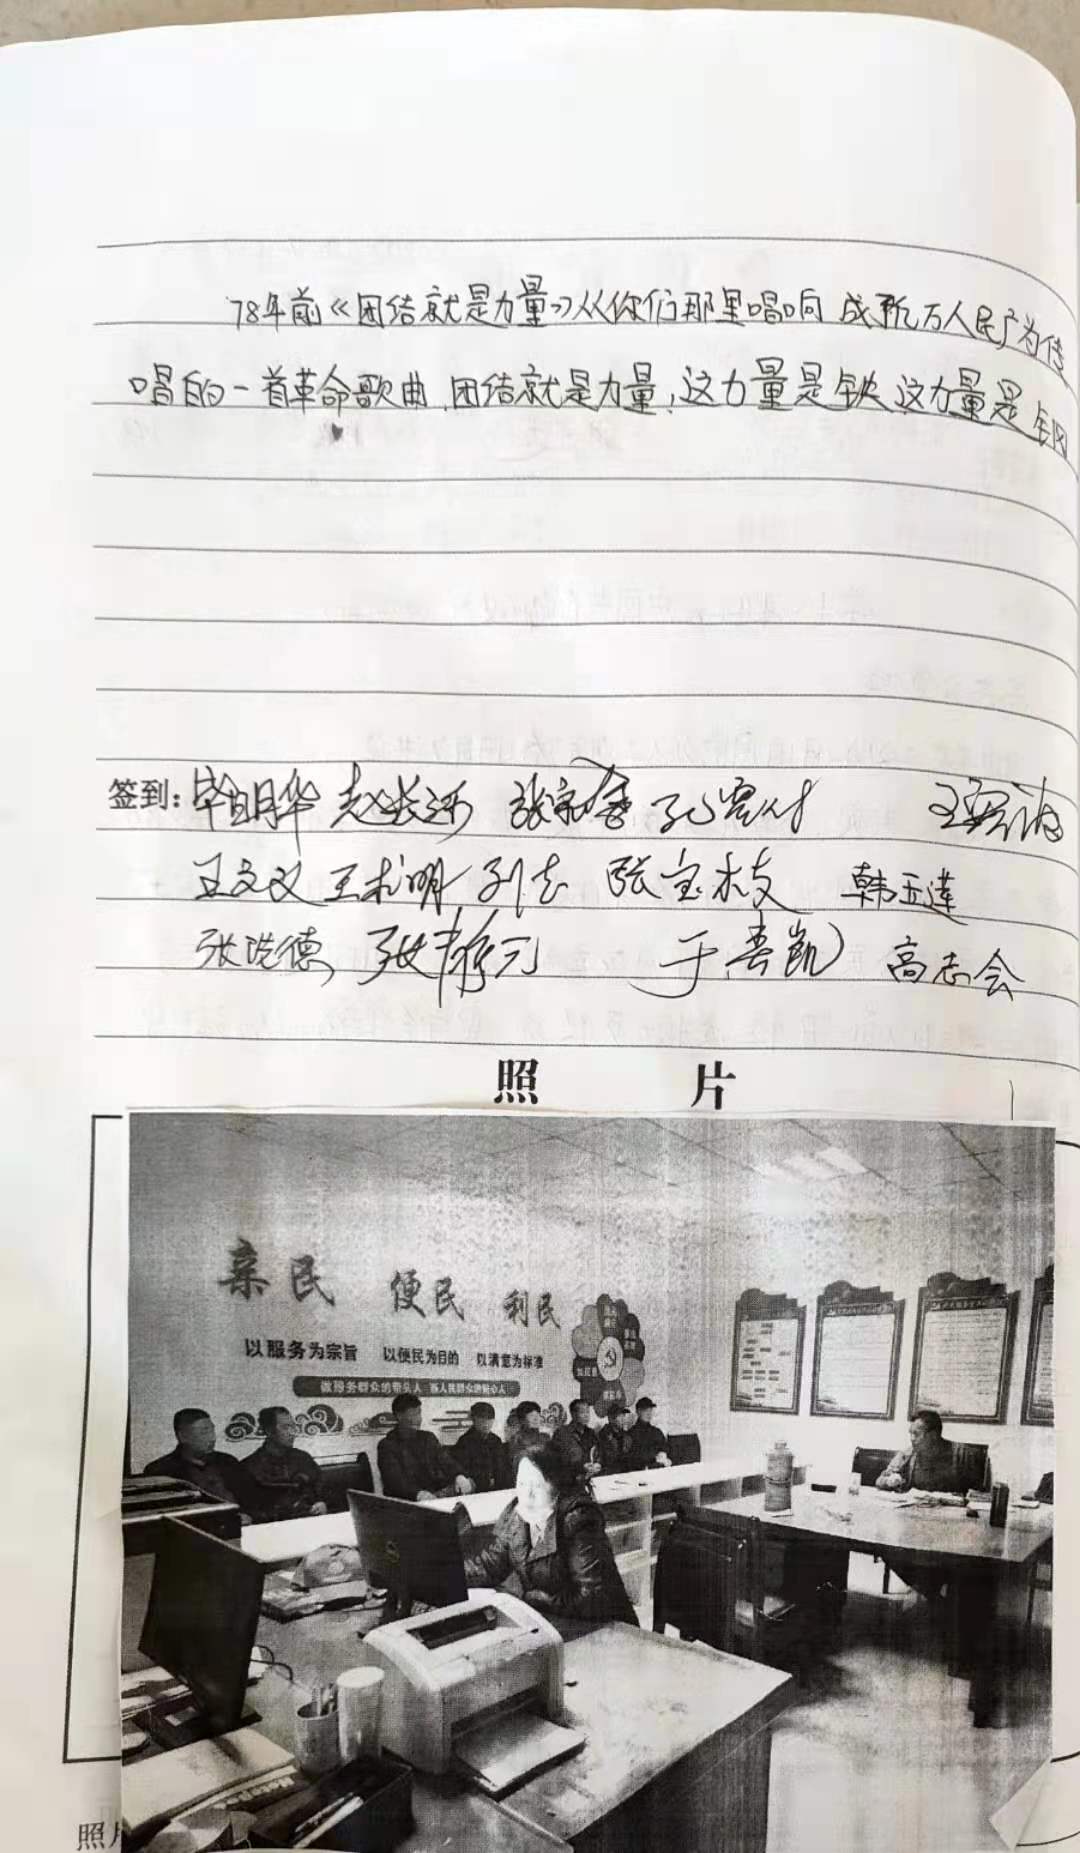 78年前《团结就是力量》从你们那里唱响 成为亿万人民广为传
唱的一首革命歌曲,团结就是力量,这力量是铁 这力量是钢
签到:毕明华 孔宪材
王文义 王术明 刘志 张宝枝 韩玉莲
张洪德 张静元 于春凯 高志会
照 片
亲民 便民 利民
以服务为宗旨 以便民为目的 以满意为标准
做服务群众的带头人
照片